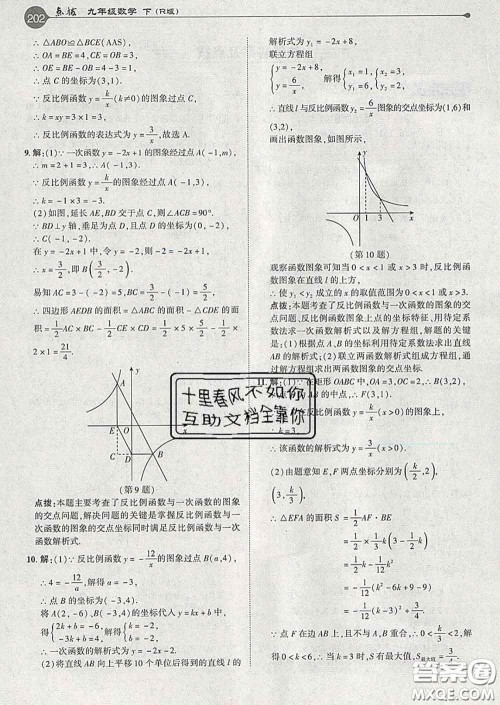 202 点拨 九年级数学 下 (R版)
∴ △ABO≌△BCE(AAS),
∴ OA = BE = 4, CE = OB = 3,
∴ OE = 4 - 3 = 1,
∴ 点 C 的坐标为(3,1),
∵ 反比例函数 y = k/x (k≠0)的图象过点 C,
∴ k = xy = 3×1 = 3,
∴ 反比例函数的表达式为 y = 3/x, 故选 A.
9. 解:(1)∵ 一次函数 y = -2x + 1 的图象经过点 A( -1,m),
∴ m = 2 + 1 = 3, ∴ A( -1,3).
∵ 反比例函数 y = k/x 的图象经过点 A( -1,3),
∴ k = -1×3 = -3.
(2)如图, 延长 AE, BD 交于点 C, 则∠ACB = 90°.
∵ BD⊥y 轴, 垂足为点 D, 且点 D 的坐标为(0, -2),
∴ C( -1, -2).
在 y = -2x + 1 中, 令 y = -2, 则 -2 = -2x + 1,
∴ x = 3/2, 即 B(3/2, -2).
易知 AC = 3 - ( -2) = 5, BC = 3/2 - ( -1) = 5/2,
∴ 四边形 AEDB 的面积 = △ABC 的面积 - △CDE 的面
积 = 1/2 AC·BC - 1/2 CE×CD = 1/2 × 5 × 5/2 - 1/2 ×
2×1 = 21/4.
A
E
C D B
x
(第 9 题)
点拨:本题主要考查了反比例函数与一次函数的图象
的交点问题, 解决问题的关键是掌握反比例函数与一
次函数的图象的交点坐标同时满足反比例函数与一次
函数解析式.
10. 解:(1)∵ 反比例函数 y = -12/x 的图象过点 B(a,4),
∴ 4 = -12/a, 解得 a = -3,
∴ 点 B 的坐标为( -3,4).
将 A(2, -6), B( -3,4)代入 y = kx + b 中,
得 {2k + b = -6, -3k + b = 4, 解得 {k = -2, b = -2,
∴ 一次函数的解析式为 y = -2x - 2.
(2)将直线 AB 向上平移 10 个单位后得到的直线 l 的
解析式为 y = -2x + 8.
联立方程组
{y = -2x + 8, y = 6/x, 解得 {x₁ = 1, y₁ = 6, {x₂ = 3, y₂ = 2.
∴ 直线 l 与反比例函数 y₂ = 6/x 图象的交点坐标为(1,6)和
(3,2),
画出函数图象, 如图所示,
O 1 3 x
(第 10 题)
观察函数图象可知当 0 < x < 1 或 x > 3 时, 反比例函
数图象在直线 l 的上方,
∴ 使 y₁ < y₂ 成立的 x 的取值范围为 0 < x < 1 或 x > 3.
点拨:本题考查了反比例函数与一次函数图象的交点
问题、反比例函数图象上点的坐标特征, 用待定系
数法求一次函数解析式以及解方程组, 解题的关键
是:(1)根据点 A, B 的坐标利用待定系数法求出直线
AB 的函数解析式;(2)联立两函数解析式组成方程组, 通
过解方程组求出两函数图象的交点坐标.
11. 解:(1)∵ 在矩形 OABC 中, OA = 3, OC = 2,
点, ∴ 点 F(3,1).
y = k/x (x > 0)的图象上,
∴ k = 3,
∴ 该函数的解析式为 y = 3/x (x > 0).
(2)由题意知 E, F 两点坐标分别为(k/2, 2),
(3, k/3),
∴ △EFA 的面积 S = 1/2 AF·BE
= 1/2 k - 1/12 k²
= -1/12 (k² - 6k + 9 - 9)
= -1/12 (k - 3)² + 3/4.
∵ 点 F 在边 AB 上, 且不与 A, B 重合, ∴ 0 < k/3 < 2, 解
得 0 < k < 6, ∴ 当 k = 3 时, S 有最大值, S最大值 = 3/4.
十里春风不如你
互助文档全靠你
答案圈
MXQE.COM